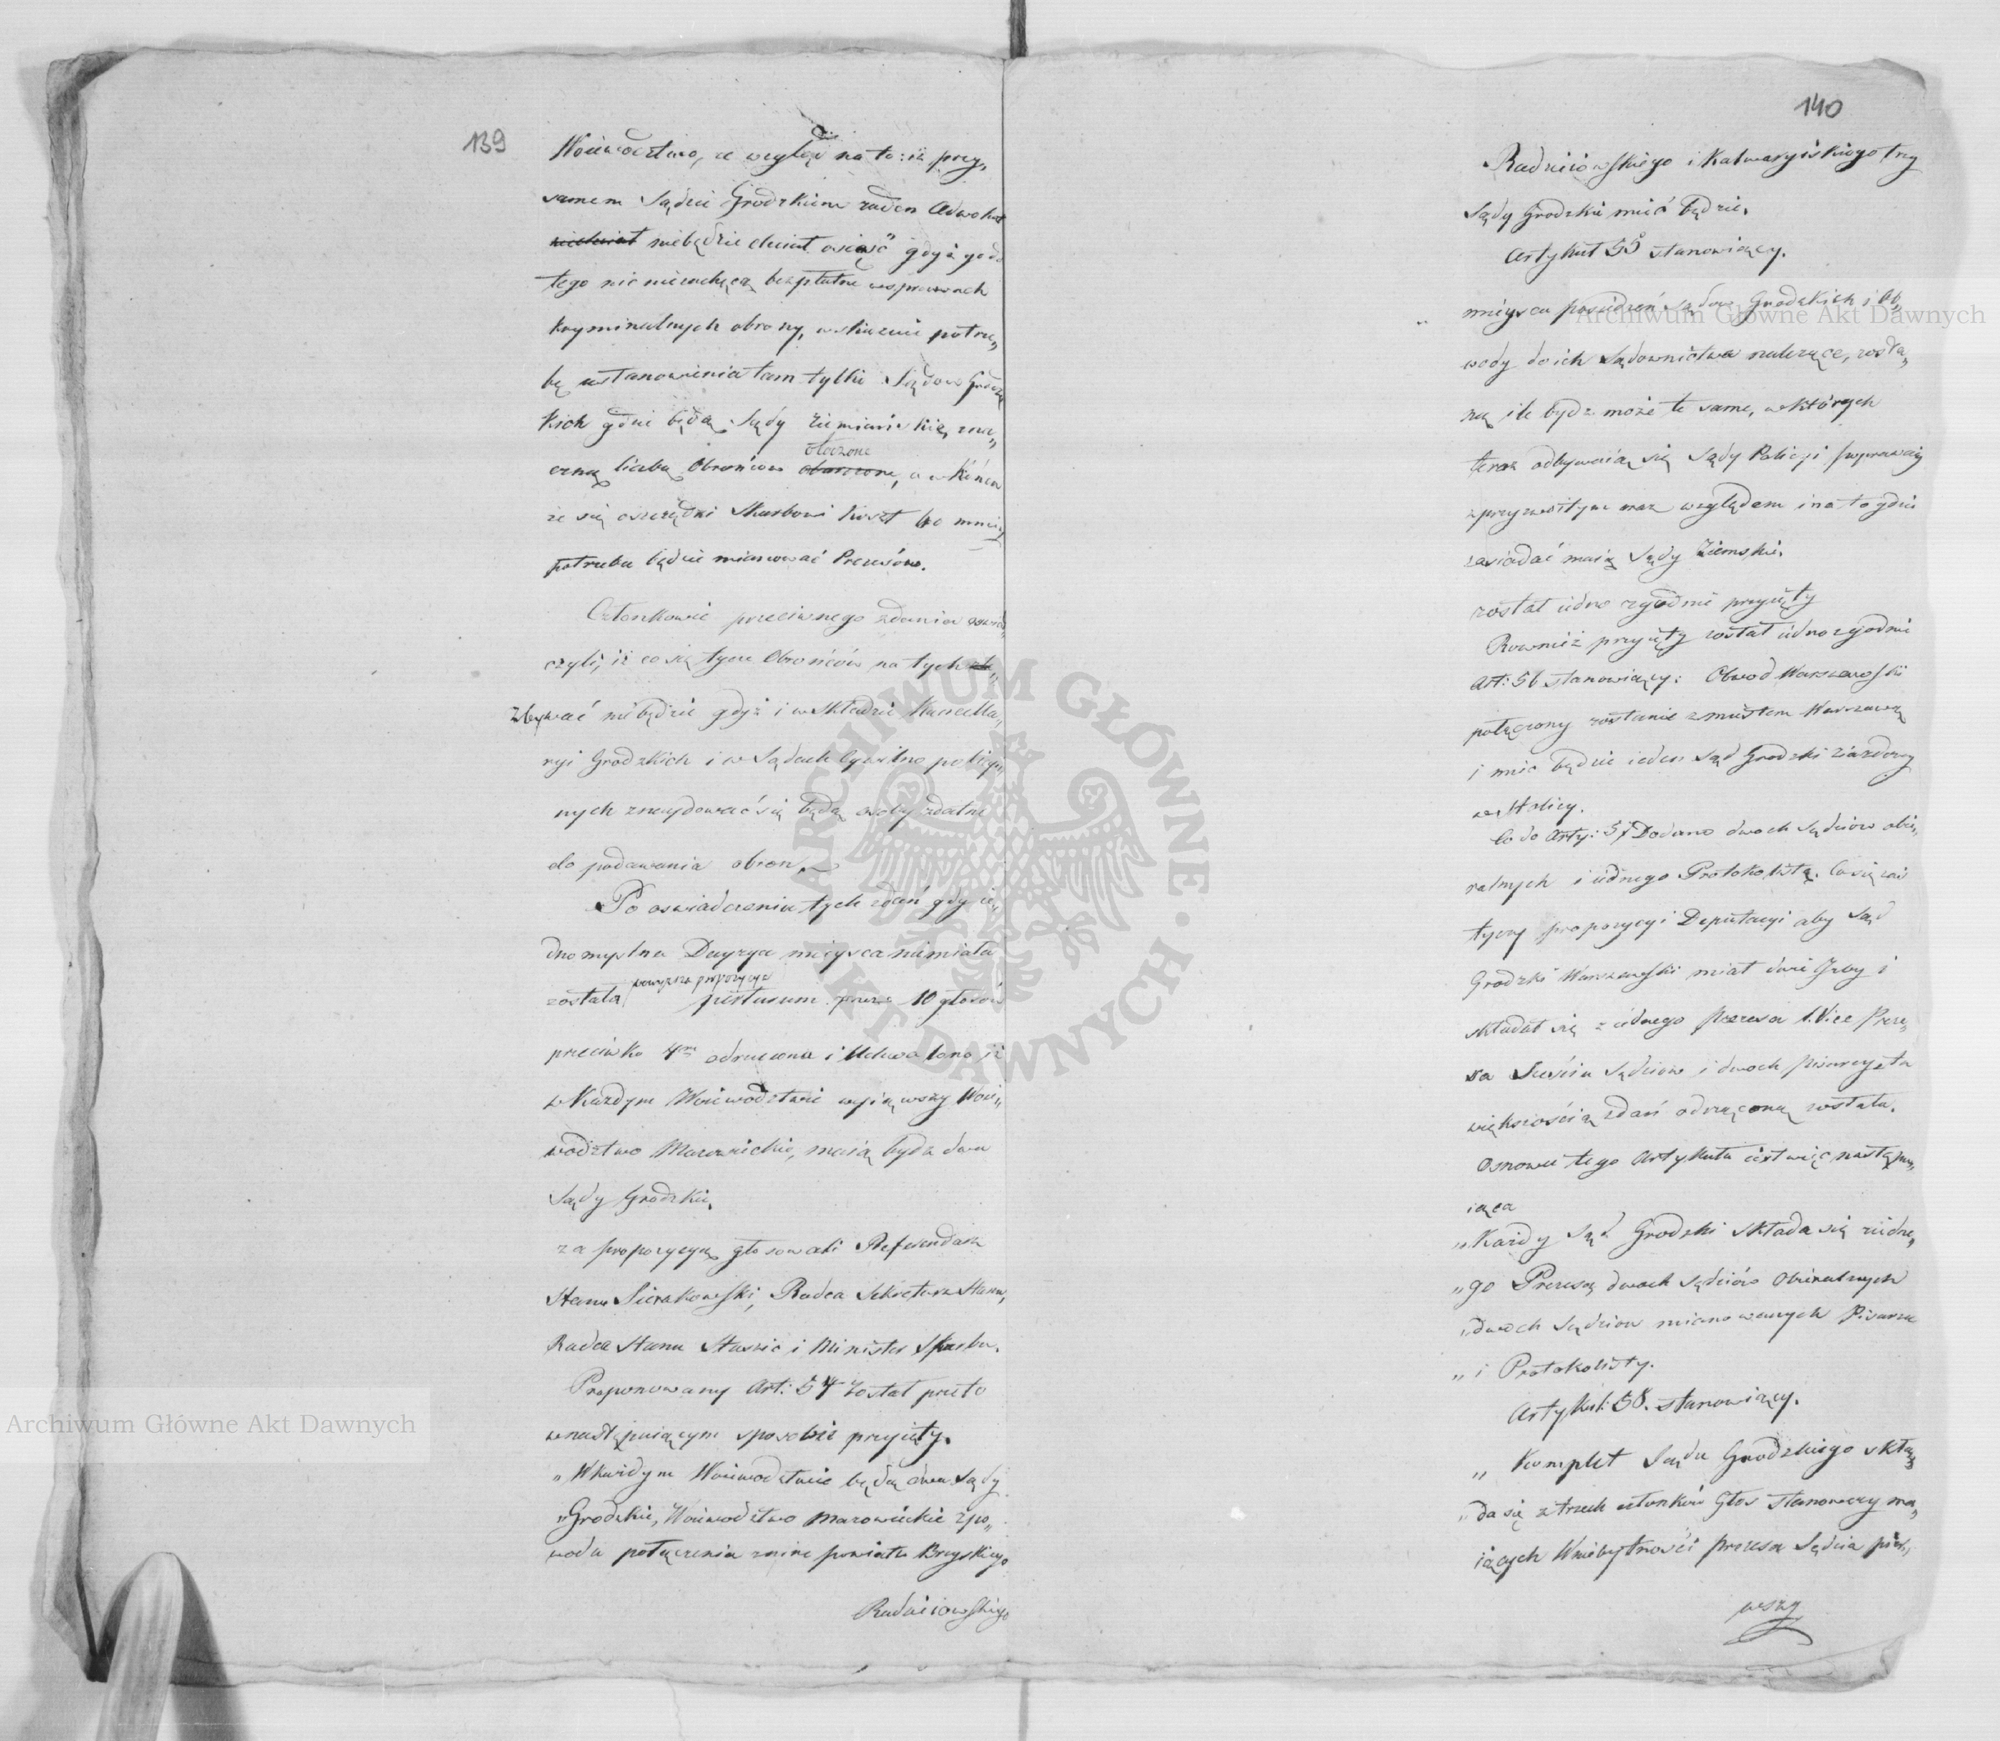 139
Woiewodztwo, ze względu na to: iż przy„
samem Sądzie Grodzkim żaden Adwokat
niebędzie chciał osieść gdyż go do
tego nic niezachęca, bezpłatne w sprawach
kryminalnych obrony, wskazuie potrze„
bę ustanowienia tam tylko Sądów Grodz
kich gdzie będą Sądy Ziemiańskie, zna„
czną liczbą Obrońców otoczone
obarczone, a w końcu
że się oszczędzi Skarbowi koszt bo mniey
potrzeba będzie mianować Prezesów.
Członkowie przeciwnego zdania oswiad„
czyli, iż co się tycze Obrońców na tych
zbywać niebędzie gdyż i w składzie Kancella„
ryi Grodzkich i w Sądach Cywilno policyi„
nych znaydować się będą osoby zdatne
do podawania obron.
Po oswiadczeniu tych zdań gdy ie„
dnomyslna Decyzya mieysca niemiała
powyższa propozycya
została pluralitate przez 10 głosów
przeciwko 4m odrzucona i Uchwalono iż
w Każdym Woiewodztwie wyiąwszy Woie„
wodztwo Mazowieckie, maią bydz dwa
Sądy Grodzkie.
za propozycyą głosowali Referendarz
Stanu Sierakowski, Radca Sekretarz Stanu,
Radca Stanu Staszic i Minister Skarbu.
Proponowany Art: 54 został przeto
w następuiącym sposobie przyięty.
„W każdym Woiewodztwie będą dwa Sądy
„Grodzkie, Woiewodztwo Mazowieckie z po„
wodu połączenia z nim powiatu Brzeskiego
Radzieiowskiego
140
Radzieiowskiego i Kalwaryiskiego trzy
Sądy Grodzkie mieć będzie.
Artykuł 55 stanowiący.
mieysca posiedzeń sądów Grodzkich i Ob„
wody do ich Sądownictwa należące, zosta„
ną ile bydz może te same, w których
teraz odbywaią się Sądy Policyi poprawczey
z przyzwoitym oraz względem i na to gdzie
zasiadać maią Sądy Ziemskie.
został iedno zgodnie przyięty
Rownież przyięty został iednozgodnie
Art: 56 stanowiący: Obwod Warszawski
połączony zostanie z miastem Warszawą
i mieć będzie ieden Sąd Grodzki ziazdowy
w Stolicy.
Co do Arty: 57 Dodano dwoch Sędziów obie„
ralnych i iednego Protokolistę. Co się zaś
tyczy propozycyi Deputacyi aby Sąd
Grodzki Warszawski miał dwie Izby i
składał się z iednego Prezesa 1. Vice Preze„
sa Sześciu Sędziów i dwoch Pisarzy ta
większością zdań odrzuconą została.
Osnowa tego Artykułu iest więc następu„
iąca
„Każdy Sąd Grodzki składa się z iedne„
„go Prezesa dwoch Sędziów Obieralnych
„dwoch Sędziow mianowanych Pisarza
„i Protokolisty.
Artykuł 58. stanowiący.
„Komplet Sądu Grodzkiego skła„
„da się z trzech członków Głos stanowczy ma„
iących W niebytności Prezesa Sędzia pier„
wszy
Archiwum Główne Akt Dawnych
Archiwum Główne Akt Dawnych
ARCHIWUM GŁÓWNE AKT DAWNYCH